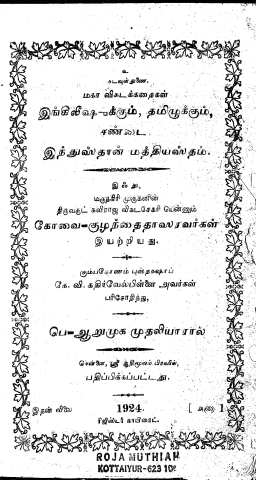 உ
கடவுள்துணை.
மகா விகடக்கதைகள்
இங்கிலீஷுக்கும், தமிழுக்கும்,
சண்டை.
இந்துஸ்தான் மத்தியஸ்தம்.
இஃது,
மருதகிரி முருகனின்
திருவருட் கவிராஜ விகடசேகரி யென்னும்
கோவை-குழந்தைதாஸரவர்கள்
இயற்றியது.
கும்பகோணம் புஸ்தகஷாப்
கே. வி. கதிர்வேல்பிள்ளை அவர்கள்
பரிசோதித்து,
பெ-ஆறுமுக முதலியாரால்
சென்னை, ஸ்ரீ ஆதிமூலம் பிரஸில்,
பதிப்பிக்கப்பட்டது.
இதன் விலை 1924. [அணா 1
ரிஜிஸ்டர் காபிரைட்.
ROJA MUTHIAH
KOTTAIYUR-623 106